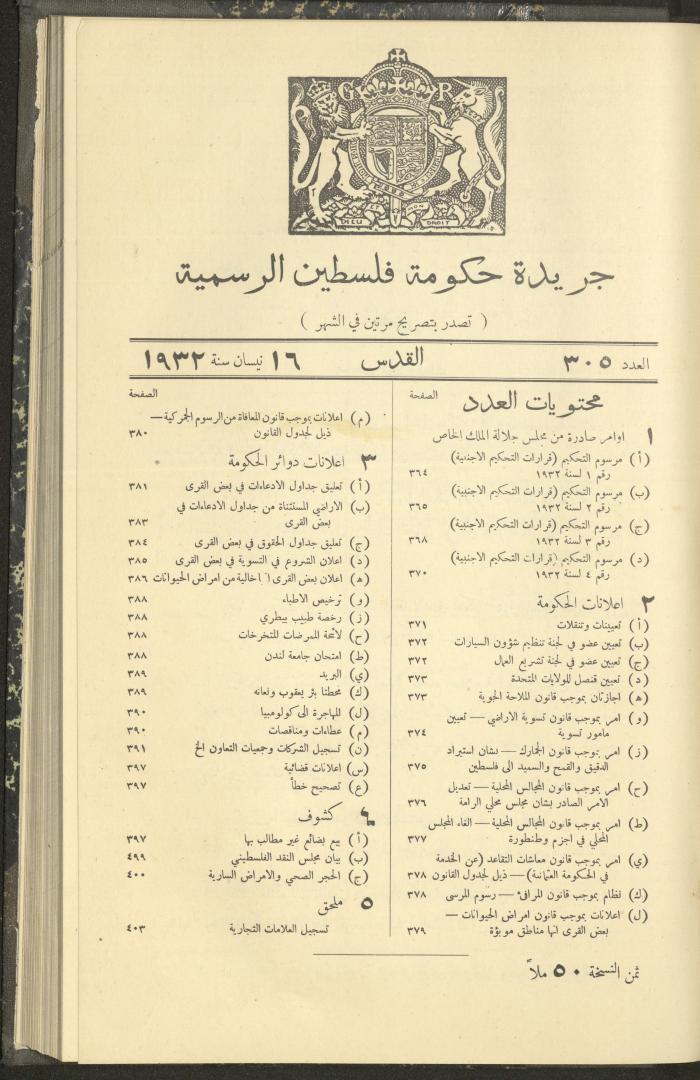 G R
DIEU ET MON DROIT
جريدة حكومة فلسطين الرسمية
( تصدر بتصريح مرتين في الشهر )
العدد ٣٠٥ القدس ١٦ نيسان سنة ١٩٣٢
محتويات العدد الصفحة
١ اوامر صادرة من مجلس جلالة الملك الخاص
(أ) مرسوم التحكيم (قرارات التحكيم الاجنبية)
رقم ١ لسنة ١٩٣٢ ٣٦٤
(ب) مرسوم التحكيم (قرارات التحكيم الاجنبية)
رقم ٢ لسنة ١٩٣٢ ٣٦٥
(ج) مرسوم التحكيم (قرارات التحكيم الاجنبية)
رقم ٣ لسنة ١٩٣٢ ٣٦٨
(د) مرسوم التحكيم (قرارات التحكيم الاجنبية)
رقم ٤ لسنة ١٩٣٢ ٣٧٠
٢ اعلانات الحكومة
(أ) تعيينات وتنقلات ٣٧١
(ب) تعيين عضو في لجنة تنظيم شؤون السيارات ٣٧٢
(ج) تعيين عضو في لجنة تشريع العمال ٣٧٢
(د) تعيين قنصل للولايات المتحدة ٣٧٣
(ه) اجازتان بموجب قانون الملاحة الجوية ٣٧٣
(و) امر بموجب قانون تسوية الاراضي — تعيين
مامور تسوية ٣٧٤
(ز) امر بموجب قانون الجمارك — بشان استيراد
الدقيق والقمح والسميد الى فلسطين ٣٧٥
(ح) امر بموجب قانون المجالس المحلية — تعديل
الامر الصادر بشان مجلس محلي الرامة ٣٧٦
(ط) امر بموجب قانون المجالس المحلية — الغاء المجلس
المحلي في اجزم وطنطورة ٣٧٧
(ي) امر بموجب قانون معاشات التقاعد (عن الخدمة
في الحكومة العثمانية) — ذيل لجدول القانون ٣٧٨
(ك) نظام بموجب قانون المرافئ — رسوم المرسى ٣٧٨
(ل) اعلانات بموجب قانون امراض الحيوانات —
بعض القرى انها مناطق موبؤة ٣٧٩
الصفحة
(م) اعلانات بموجب قانون المعافاة من الرسوم الجمركية —
ذيل لجدول القانون ٣٨٠
٣ اعلانات دوائر الحكومة
(أ) تعليق جداول الادعاءات في بعض القرى ٣٨١
(ب) الاراضي المستثناة من جداول الادعاءات في
بعض القرى ٣٨٣
(ج) تعليق جداول الحقوق في بعض القرى ٣٨٤
(د) اعلان الشروع في التسوية في بعض القرى ٣٨٥
(ه) اعلان بعض القرى خالية من امراض الحيوانات ٣٨٦
(و) ترخيص الاطباء ٣٨٨
(ز) رخصة طبيب بيطري ٣٨٨
(ح) لائحة الممرضات المتخرجات ٣٨٨
(ط) امتحان جامعة لندن ٣٨٨
(ي) البريد ٣٨٩
(ك) محطتا بئر يعقوب ونعانه ٣٨٩
(ل) المهاجرة الى كولومبيا ٣٩٠
(م) عطاءات ومناقصات ٣٩٠
(ن) تسجيل الشركات وجمعيات التعاون الخ ٣٩١
(س) اعلانات قضائية ٣٩٧
(ع) تصحيح خطأ ٣٩٧
٤ كشوف
(أ) بيع بضائع غير مطالب بها ٣٩٧
(ب) بيان مجلس النقد الفلسطيني ٤٩٩
(ج) الحجر الصحي والامراض السارية ٤٠٠
٥ ملحق
تسجيل العلامات التجارية ٤٠٣
ثمن النسخة ٥٠ ملاً